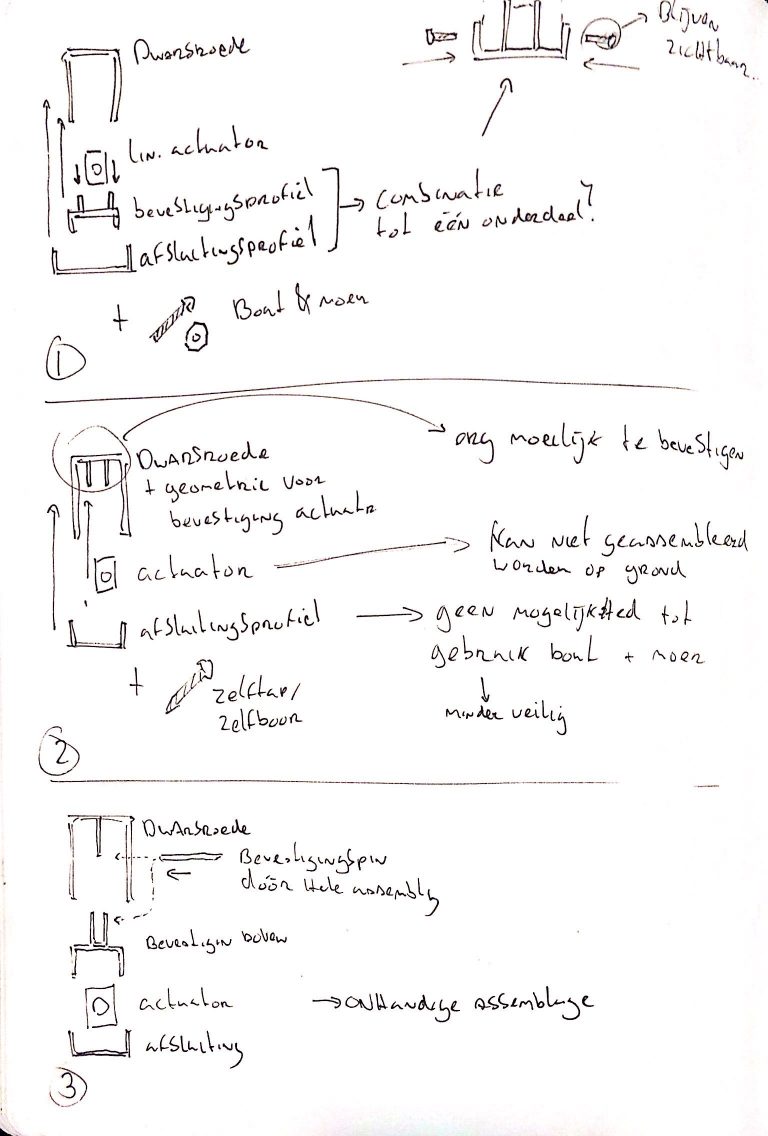 Blijven
zichtbaar..
Dwarsroede
lin. actuator
bevestigingsprofiel
afsluitingsprofiel
Combinatie
tot één onderdeel?
+
Bout & moer
1
Dwarsroede
+ geometrie voor
bevestiging actuatr
erg moeilijk te bevestigen
actuator
Kan niet geassembleerd
worden op grond
afsluitingsprofiel
geen mogelijkheid tot
gebruik bout + moer
minder veilig
+
zelftap/
zelfboor
2
Dwarsroede
Bevestigingspin
dóór hele assembly
Bevestigin boven
actuator
onhandige assemblage
afsluiting
3